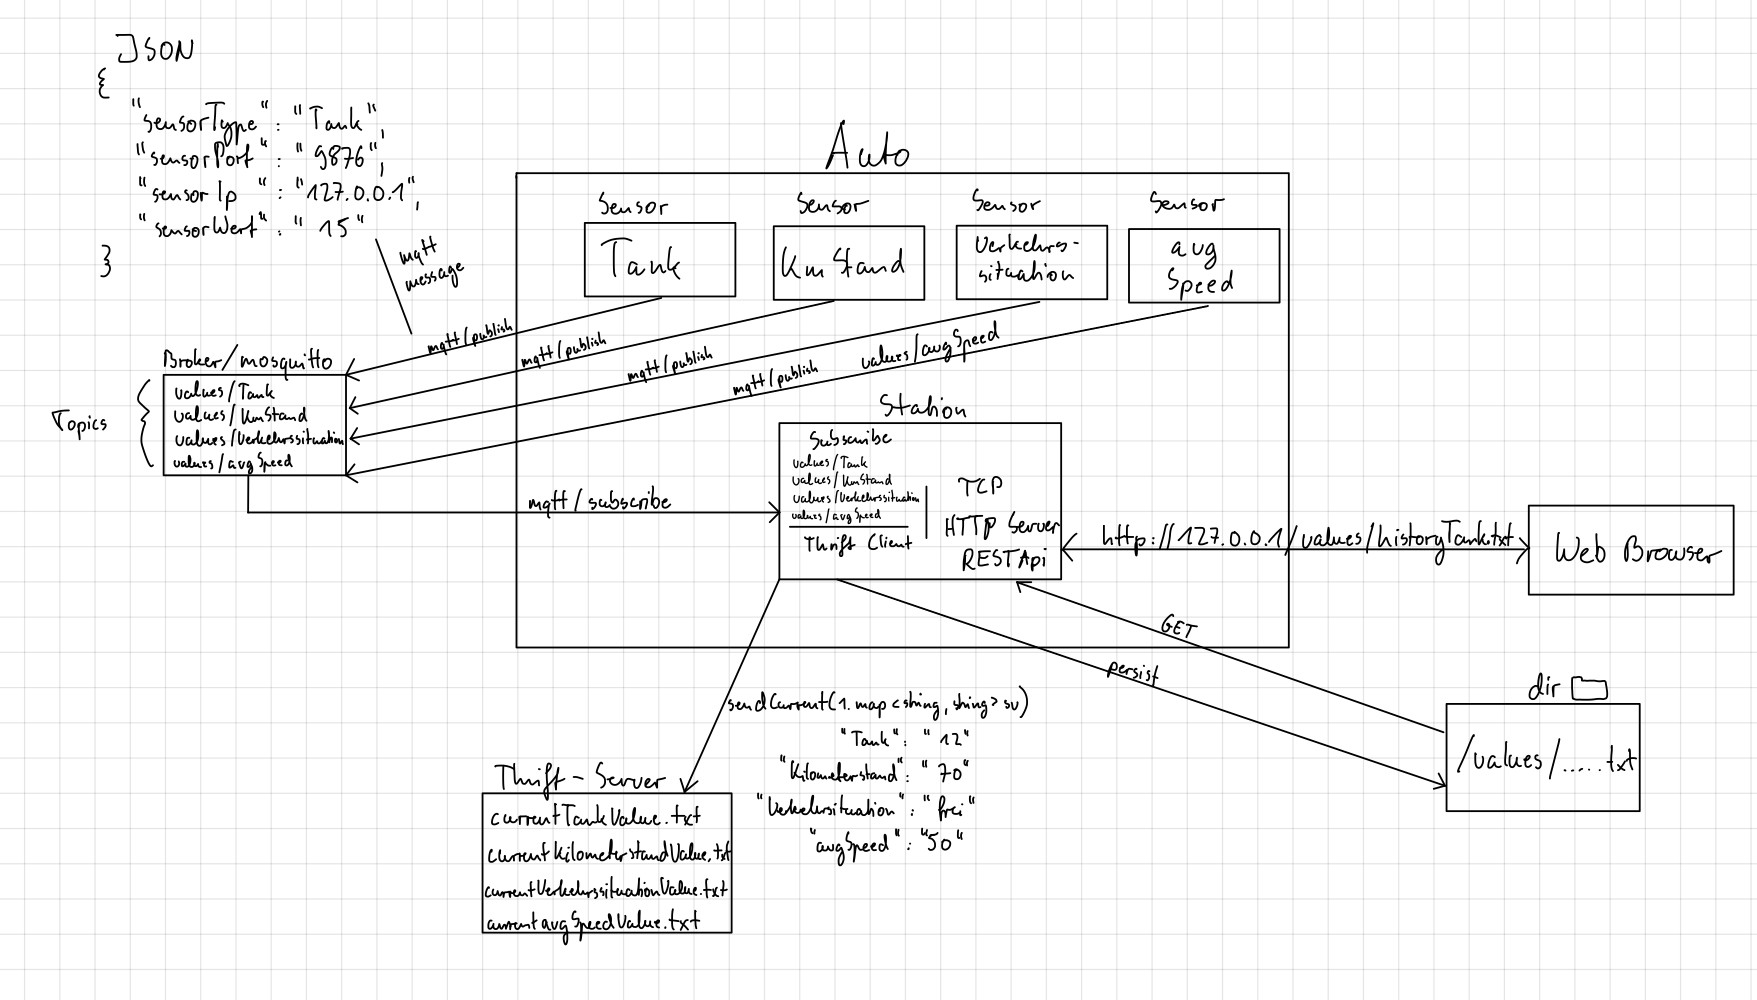 JSON
{
"sensorType" : "Tank",
"sensorPort" : "9876",
"sensorIp" : "127.0.0.1",
"sensorWert" : "15"
}
mqtt
message
Auto
Sensor
Tank
Sensor
Km Stand
Sensor
Verkehrs-
situation
Sensor
avg
Speed
mqtt/publish
mqtt/publish
mqtt/publish
mqtt/publish
values/avgSpeed
Broker/mosquitto
Topics
values/Tank
values/KmStand
values/Verkehrssituation
values/avgSpeed
mqtt/subscribe
Station
Subscribe
values/Tank
values/KmStand
values/Verkehrssituation
values/avgSpeed
Thrift Client
TCP
HTTP Server
RESTApi
http://127.0.0.1/values/historyTank.txt
Web Browser
GET
persist
dir
/values/.....txt
sendCurrent(1. map<string, string> sv)
"Tank": "12"
"Kilometerstand": "70"
"Verkehrsituation": "frei"
"avgSpeed": "50"
Thrift-Server
currentTankValue.txt
currentKilometerstandValue.txt
currentVerkehrssituationValue.txt
currentavgSpeedValue.txt